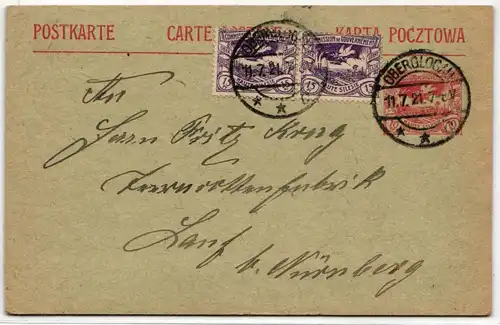 POSTKARTE CARTE KARTA POCZTOWA
COMMISSION DE GOUVERNEMENT COMMISSION DE GOUVERNEMENT
HAUTE SILESIE
15 15 15
OBERGLOGAU
11.7.21.
OBERGLOGAU
11.7.21.7-8V
An
Herrn Fritz Krug
Lauf
b. Nürnberg